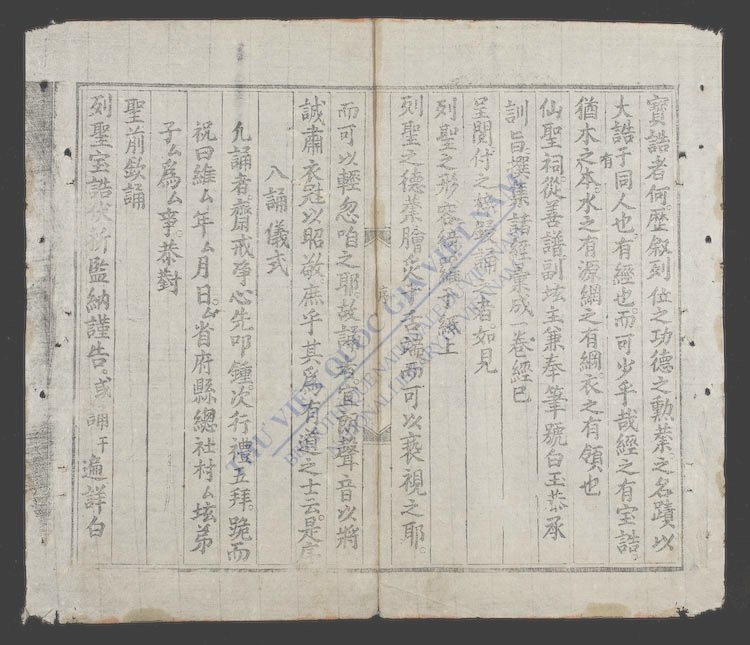 寶誥者何。歷叙列位之功德之勲業。之名蹟以
大誥于同人也。有經也。而可少乎哉經之有宝誥。
有
猶水之本。水之有源網之有綱。衣之有領也
仙聖祠。從善譜副坛主兼奉筆號白玉恭承
訓旨。撰集諸經彙成一卷。經已
呈閱。付之 誦之者。如見
列聖之形容 紙上
列聖之德業膾炙 舌端而可以褻視之耶。
而可以輕忽咱之耶。故誦者。宜詡聲音以將
誠肅衣冠以昭敬。庶乎其爲有道之士云。是序
序
入誦儀式
允誦者。齋戒净心先叩鍾。次行禮五拜。跪而
祝曰維厶年厶月日。厶省府縣總社村厶坛弟
子厶爲厶事。恭對
聖前欽誦
列聖宝誥 所監納謹告。或誦千遍詳白
THƯ VIỆN QUỐC GIA VIỆT NAM
NATIONAL LIBRARY OF VIETNAM